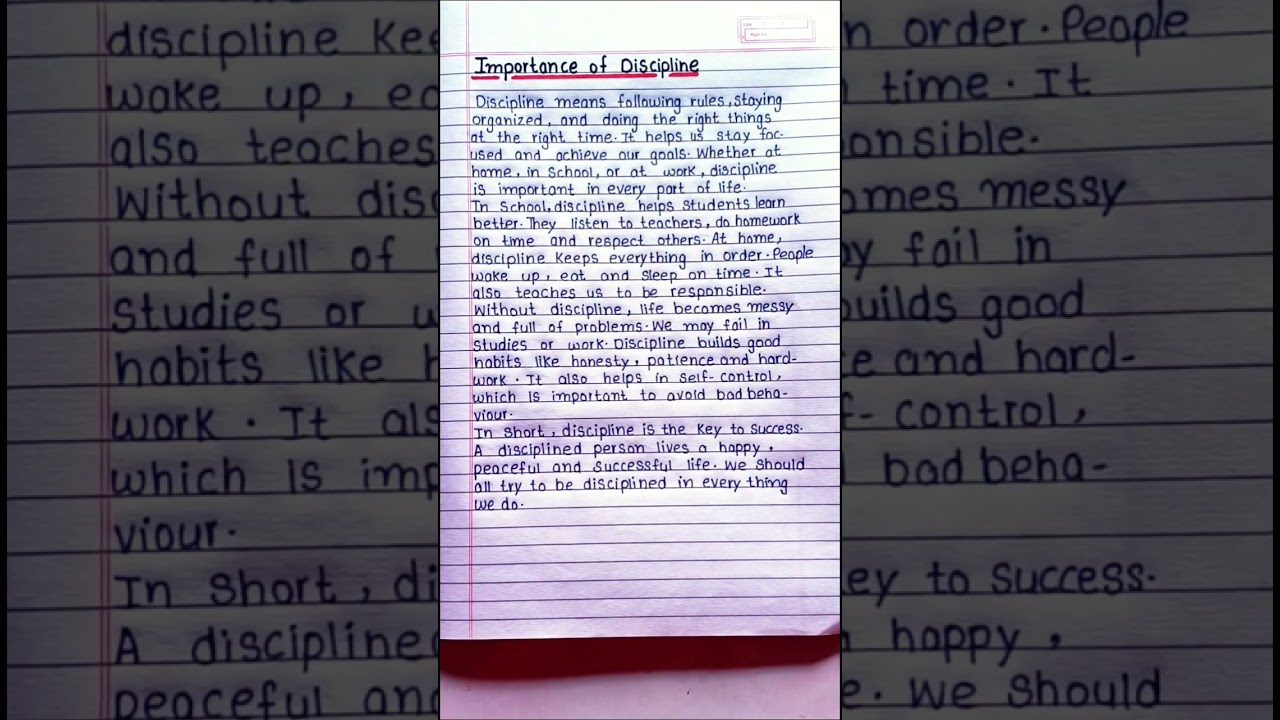 Importance of Discipline
Discipline means following rules, staying
organized, and doing the right things
at the right time. It helps us stay foc-
used and achieve our goals. Whether at
home, in School, or at work, discipline
is important in every part of life.
In School, discipline helps students learn
better. They listen to teachers, do homework
on time and respect others. At home,
discipline keeps everything in order. People
wake up, eat and sleep on time. It
also teaches us to be responsible.
Without discipline, life becomes messy
and full of problems. We may fail in
studies or work. Discipline builds good
habits like honesty, patience and hard-
work. It also helps in self-control,
which is important to avoid bad beha-
viour.
In short, discipline is the key to success.
A disciplined person lives a happy,
peaceful and successful life. We should
all try to be disciplined in every thing
we do.